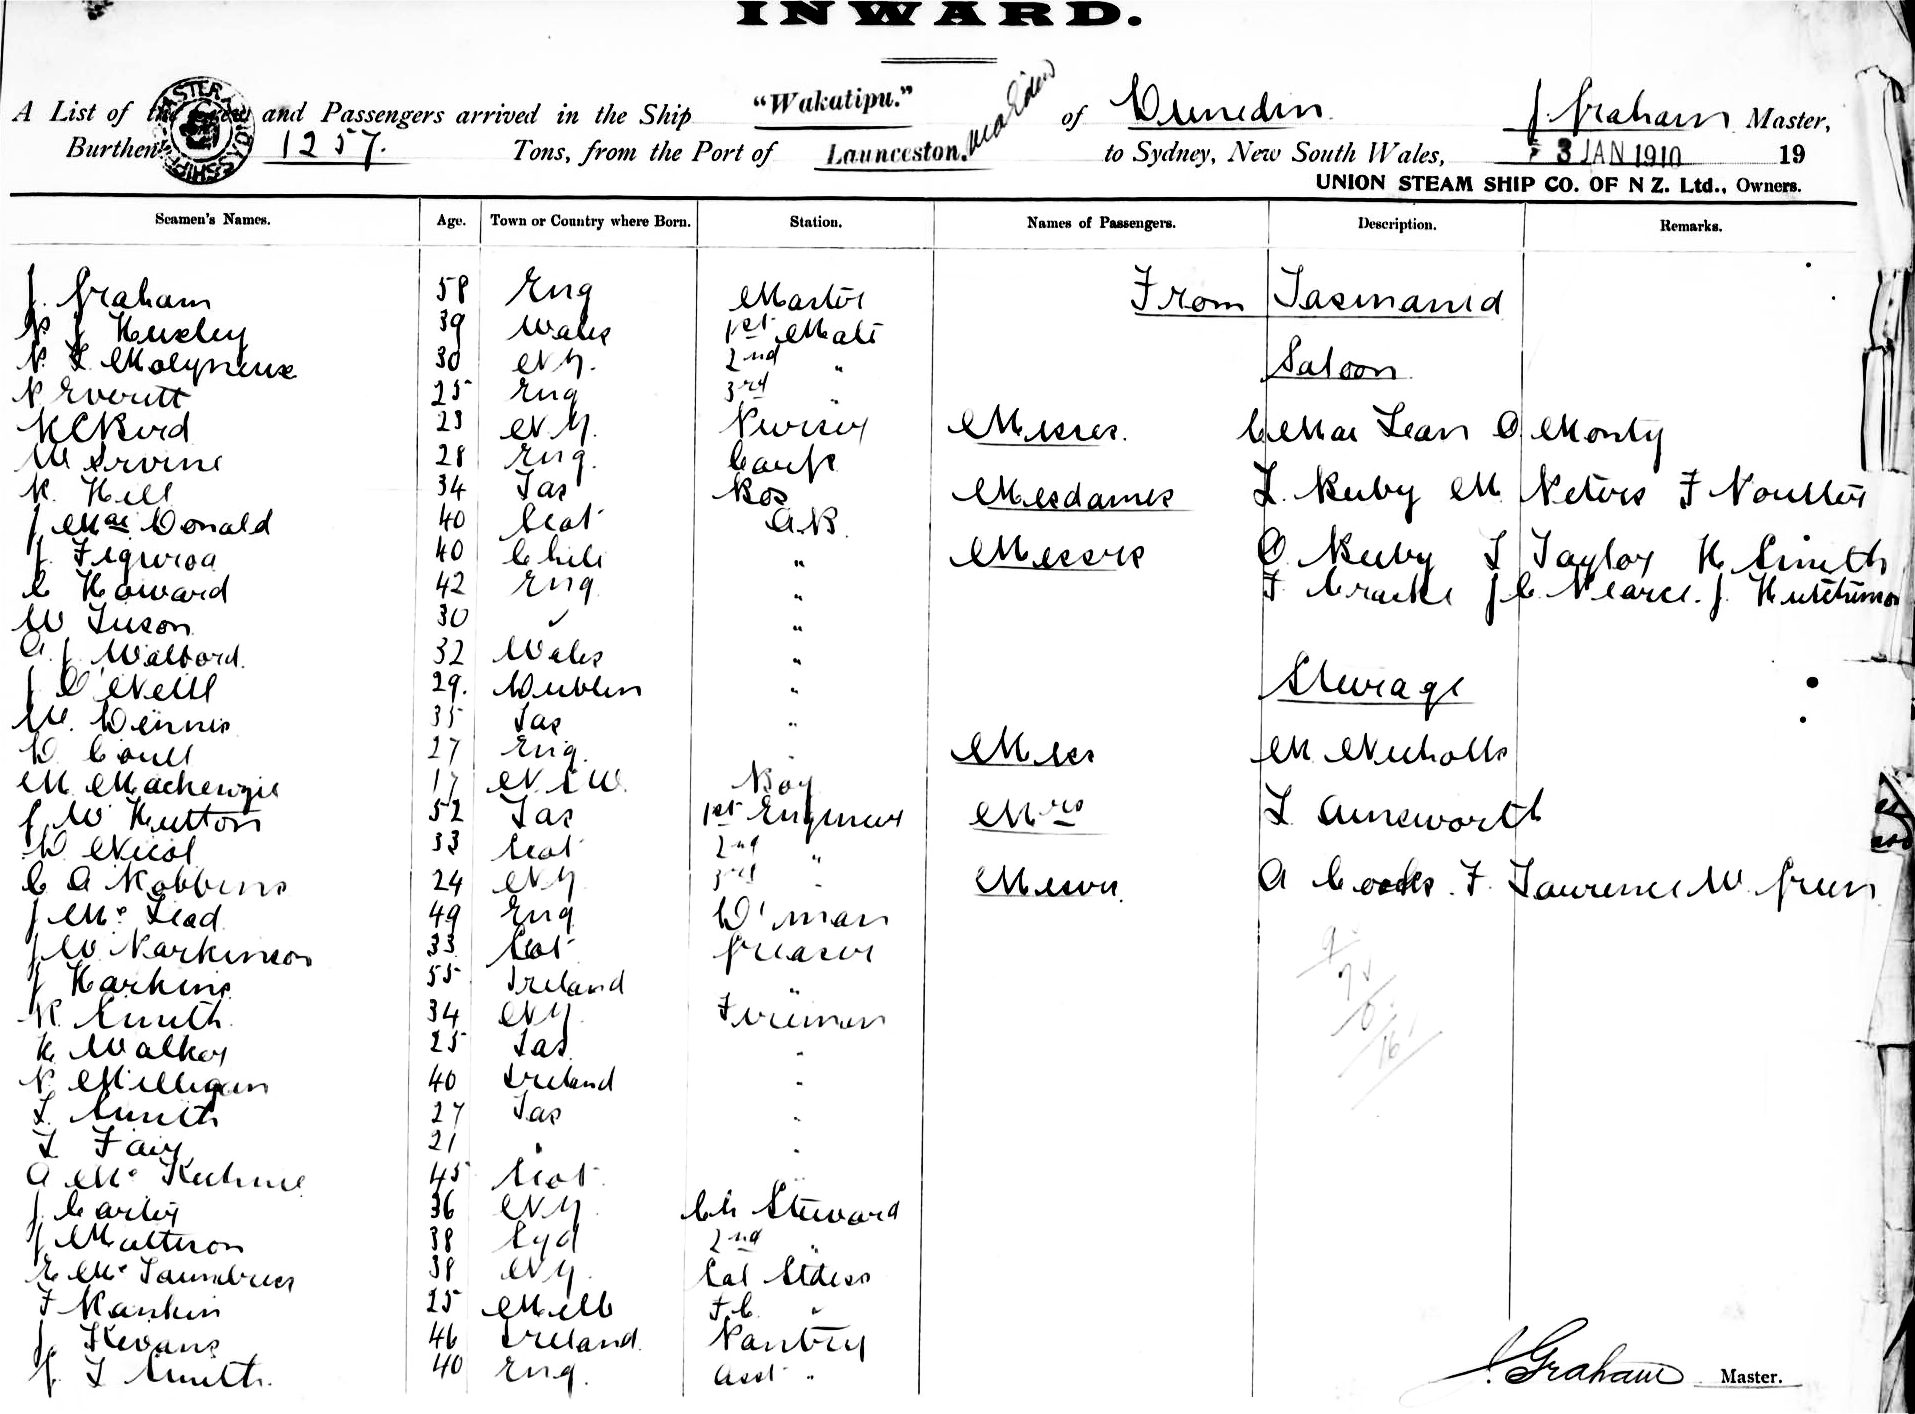 INWARD.
A List of the Crew and Passengers arrived in the Ship "Wakatipu." of Dunedin J. Graham Master,
Burthen 1257. Tons, from the Port of Launceston. via Eden to Sydney, New South Wales, 3 JAN 1910 19
UNION STEAM SHIP CO. OF N Z. Ltd., Owners.
Seamen's Names. Age. Town or Country where Born. Station. Names of Passengers. Description. Remarks.
J. Graham 58 Eng Master From Tasmania
39 Wales 1st Mate
Molyneux 30 N.Z. 2nd " Saloon
P Everett 25 Eng 3rd "
23 N.Z. Purser Messrs. C MacLean O Monty
W Irvine 28 Eng. Carp
R. Hill 34 Tas Bos Mesdames L. Ruby M Peters F Poulter
J MacDonald 40 Scot A.B.
J. Figuroa 40 Chile " Messrs O Ruby T Taylor H Smith
C Howard 42 Eng " F. J C. Pearce. J. Hutchinson
W Tuson 30 " "
A. J. 32 Wales "
J O'Neill 29. Dublin " Steerage
W. Dennis 35 Tas "
D. Coull 27 Eng. " Miss M Nicholls
M Mackenzie 17 N S W. Boy
J W Hutton 52 Tas 1st Engineer Mrs L Ainsworth
D. Nicol 33 Scot 2nd "
C A Robbins 24 NZ 3rd " Messrs. A Cooks. F. Lawrence W. Green
J McLead 49 Eng D'man
J W Parkinson 33 Scot Greaser
J Harkins 55 Ireland "
R. Smith 34 NZ Firemen
H Walker 25 Tas. "
P. Milligan 40 Ireland "
L. Smith 27 Tas "
L. Fair 21 " "
A Mc 45 Scot. "
J. Carter 36 NZ Ch Steward
J Matteson 38 Syd 2nd "
E Mc 38 NZ. Sal Stdess
F Rankin 25 Melb F.C. "
J. Kevans 46 Ireland. Pantry
J. T Smith. 40 Eng. Asst "
J. Graham Master.